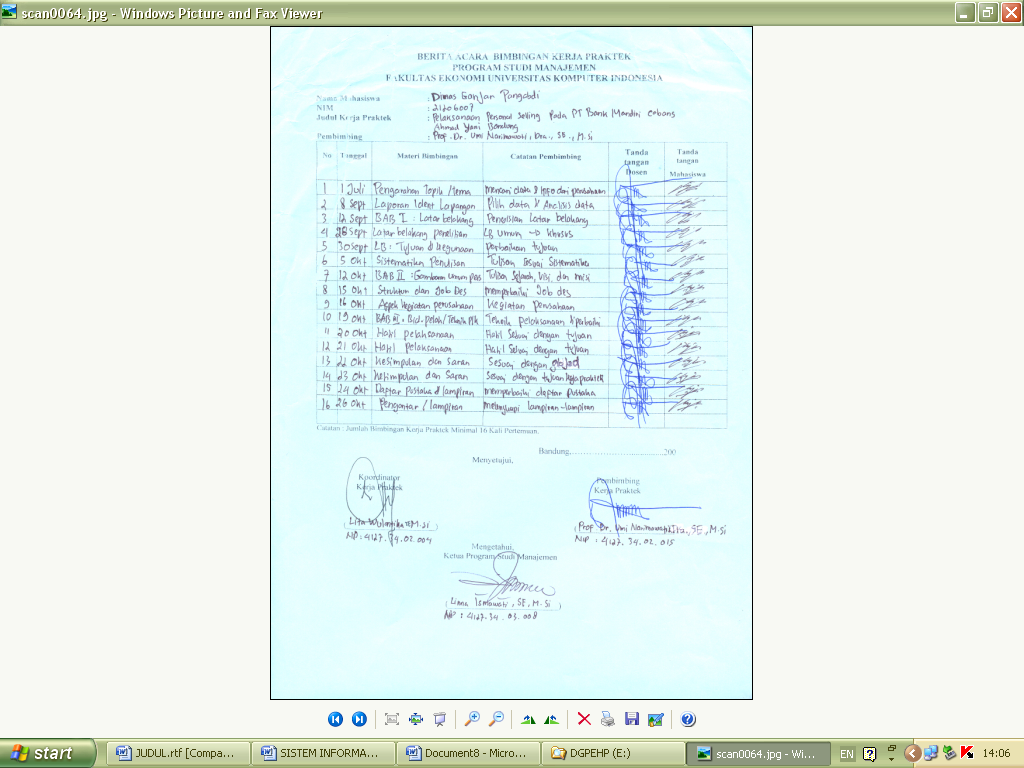 scan0064.jpg - Windows Picture and Fax Viewer
BERITA ACARA BIMBINGAN KERJA PRAKTEK
PROGRAM STUDI MANAJEMEN
FAKULTAS EKONOMI UNIVERSITAS KOMPUTER INDONESIA
Nama Mahasiswa : Dimas Ganjar Pangabdi
NIM : 21206007
Judul Kerja Praktek : Pelaksanaan Personal Selling Pada PT Bank Mandiri Cabang
Ahmad Yani Bandung
Pembimbing : Prof. Dr. Umi Narimawati, Dra., SE., M.Si
No Tanggal Materi Bimbingan Catatan Pembimbing Tanda tangan Dosen Tanda tangan Mahasiswa
1 1 Juli Pengarahan Topik / Tema mencari data & info dari perusahaan
2 8 Sept Laporan Ident Lapangan Pilih data & Analisis data
3 12 Sept BAB I : Latar belakang Pengisian Latar belakang
4 28 Sept Latar belakang penelitian LB umum → khusus
5 30 Sept LB : Tujuan & kegunaan perbaikan tujuan
6 5 Okt Sistematika Penulisan Tulisan Sesuai Sistematika
7 12 Okt BAB II : Gambaran umum pers Tulisan Sejarah, Visi, dan misi
8 15 Okt Struktur dan Job Des memperbaiki Job des
9 16 Okt Aspek kegiatan perusahaan kegiatan perusahaan
10 19 Okt BAB III. Bid-pelak/Teknik Plk Teknik pelaksanaan diperbaiki
11 20 Okt Hasil pelaksanaan Hasil Sesuai dengan tujuan
12 21 Okt Hasil pelaksanaan Hasil Sesuai dengan tujuan
13 22 Okt Kesimpulan dan Saran Sesuai dengan
14 23 Okt Kesimpulan dan Saran Sesuai dengan tujuan kerja praktek
15 24 Okt Daptar Pustaka & lampiran memperbaiki daptar pustaka
16 26 Okt Pengantar / lampiran melengkapi lampiran-lampiran
Catatan : Jumlah Bimbingan Kerja Praktek Minimal 16 Kali Pertemuan.
Bandung,..............................200
Menyetujui,
Koordinator
Kerja Praktek
Pembimbing
Kerja Praktek
Lita Wulantika SE, M.Si
NIP: 4127.34.02.004
Prof. Dr. Umi Narimawati, Dra., SE, M.Si
NIP : 4127.34.02.015
Mengetahui,
Ketua Program Studi Manajemen
Linna Ismawati, SE, M.Si
NIP : 4127.34.03.008
start
JUDUL.rtf [Compa...
SISTEM INFORMA...
Document8 - Micro...
DGPEHP (E:)
scan0064.jpg - Wi...
EN
14:06